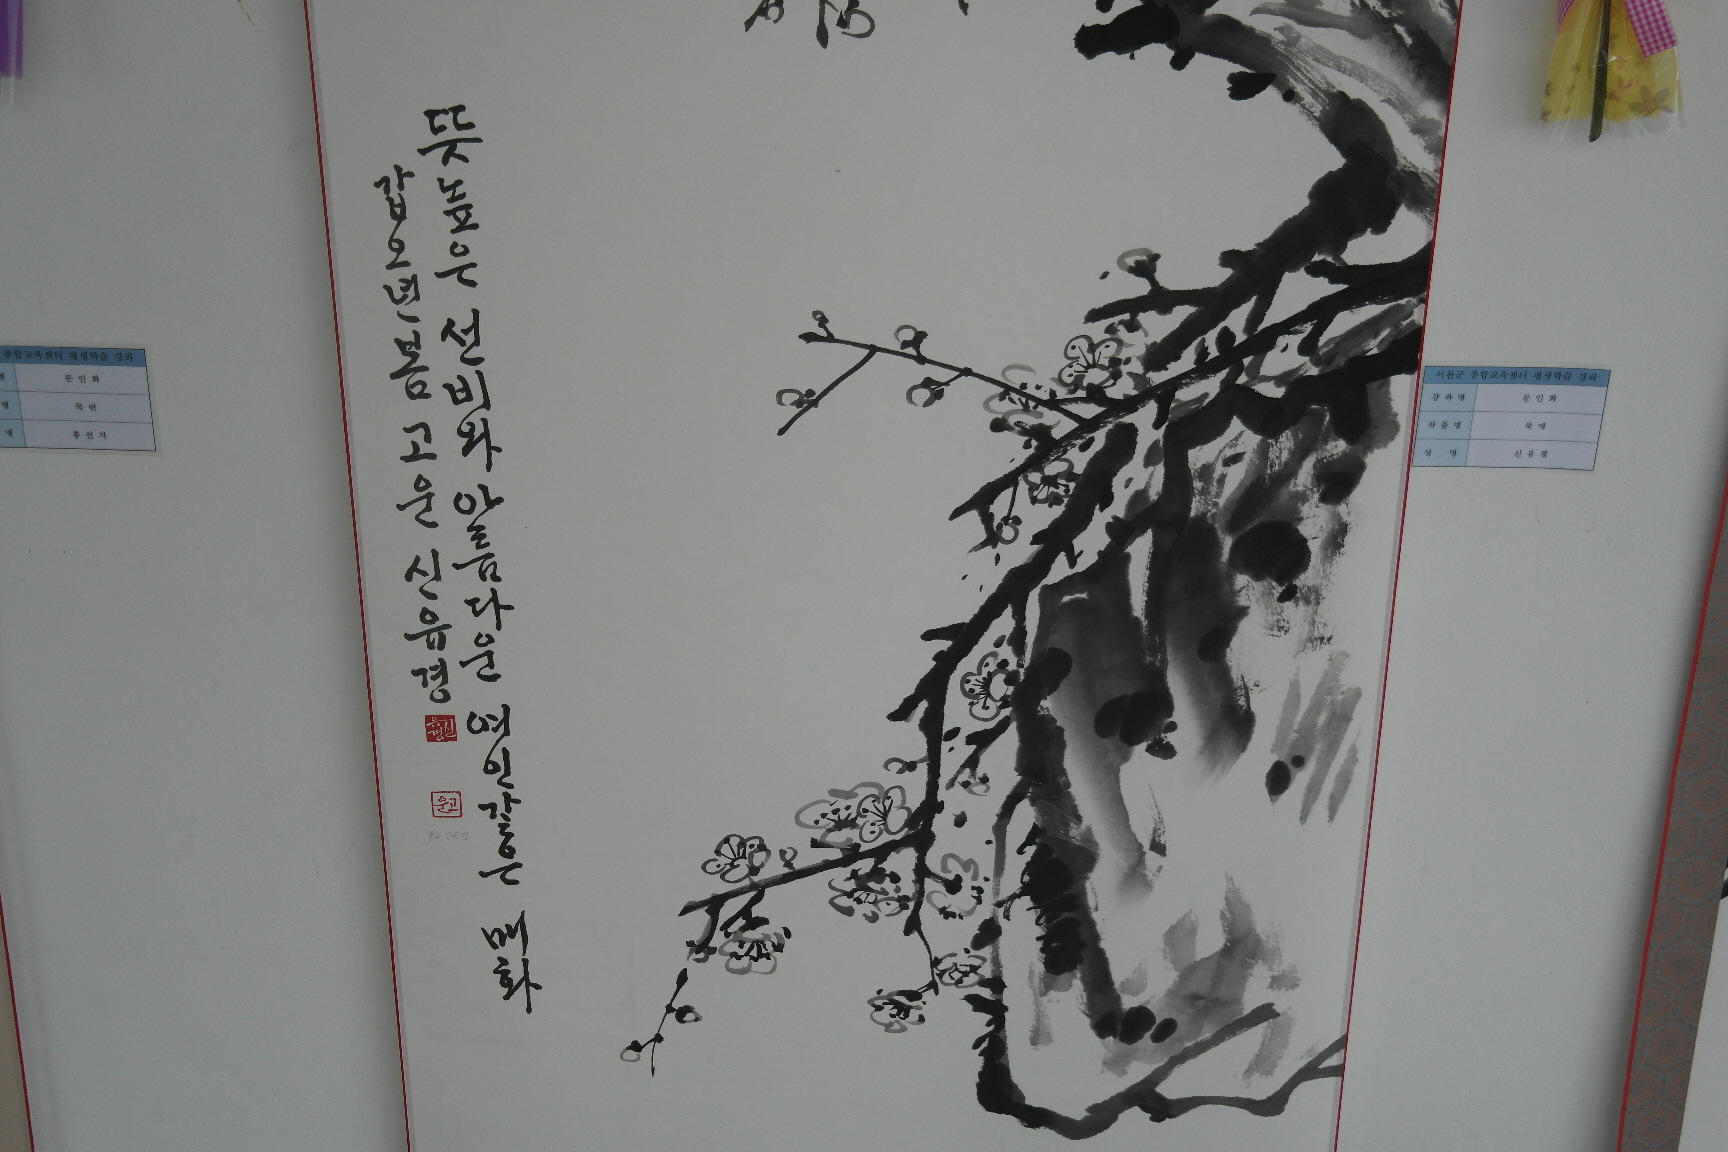 뜻높은 선비와 아름다운 여인같은 매화
갑오년봄 고운 신유경
종합교육센터 평생학습 강좌
명 문인화
명 묵란
명 홍선자
서천군 종합교육센터 평생학습 강좌
강좌명 문인화
작품명 묵매
성 명 신유경